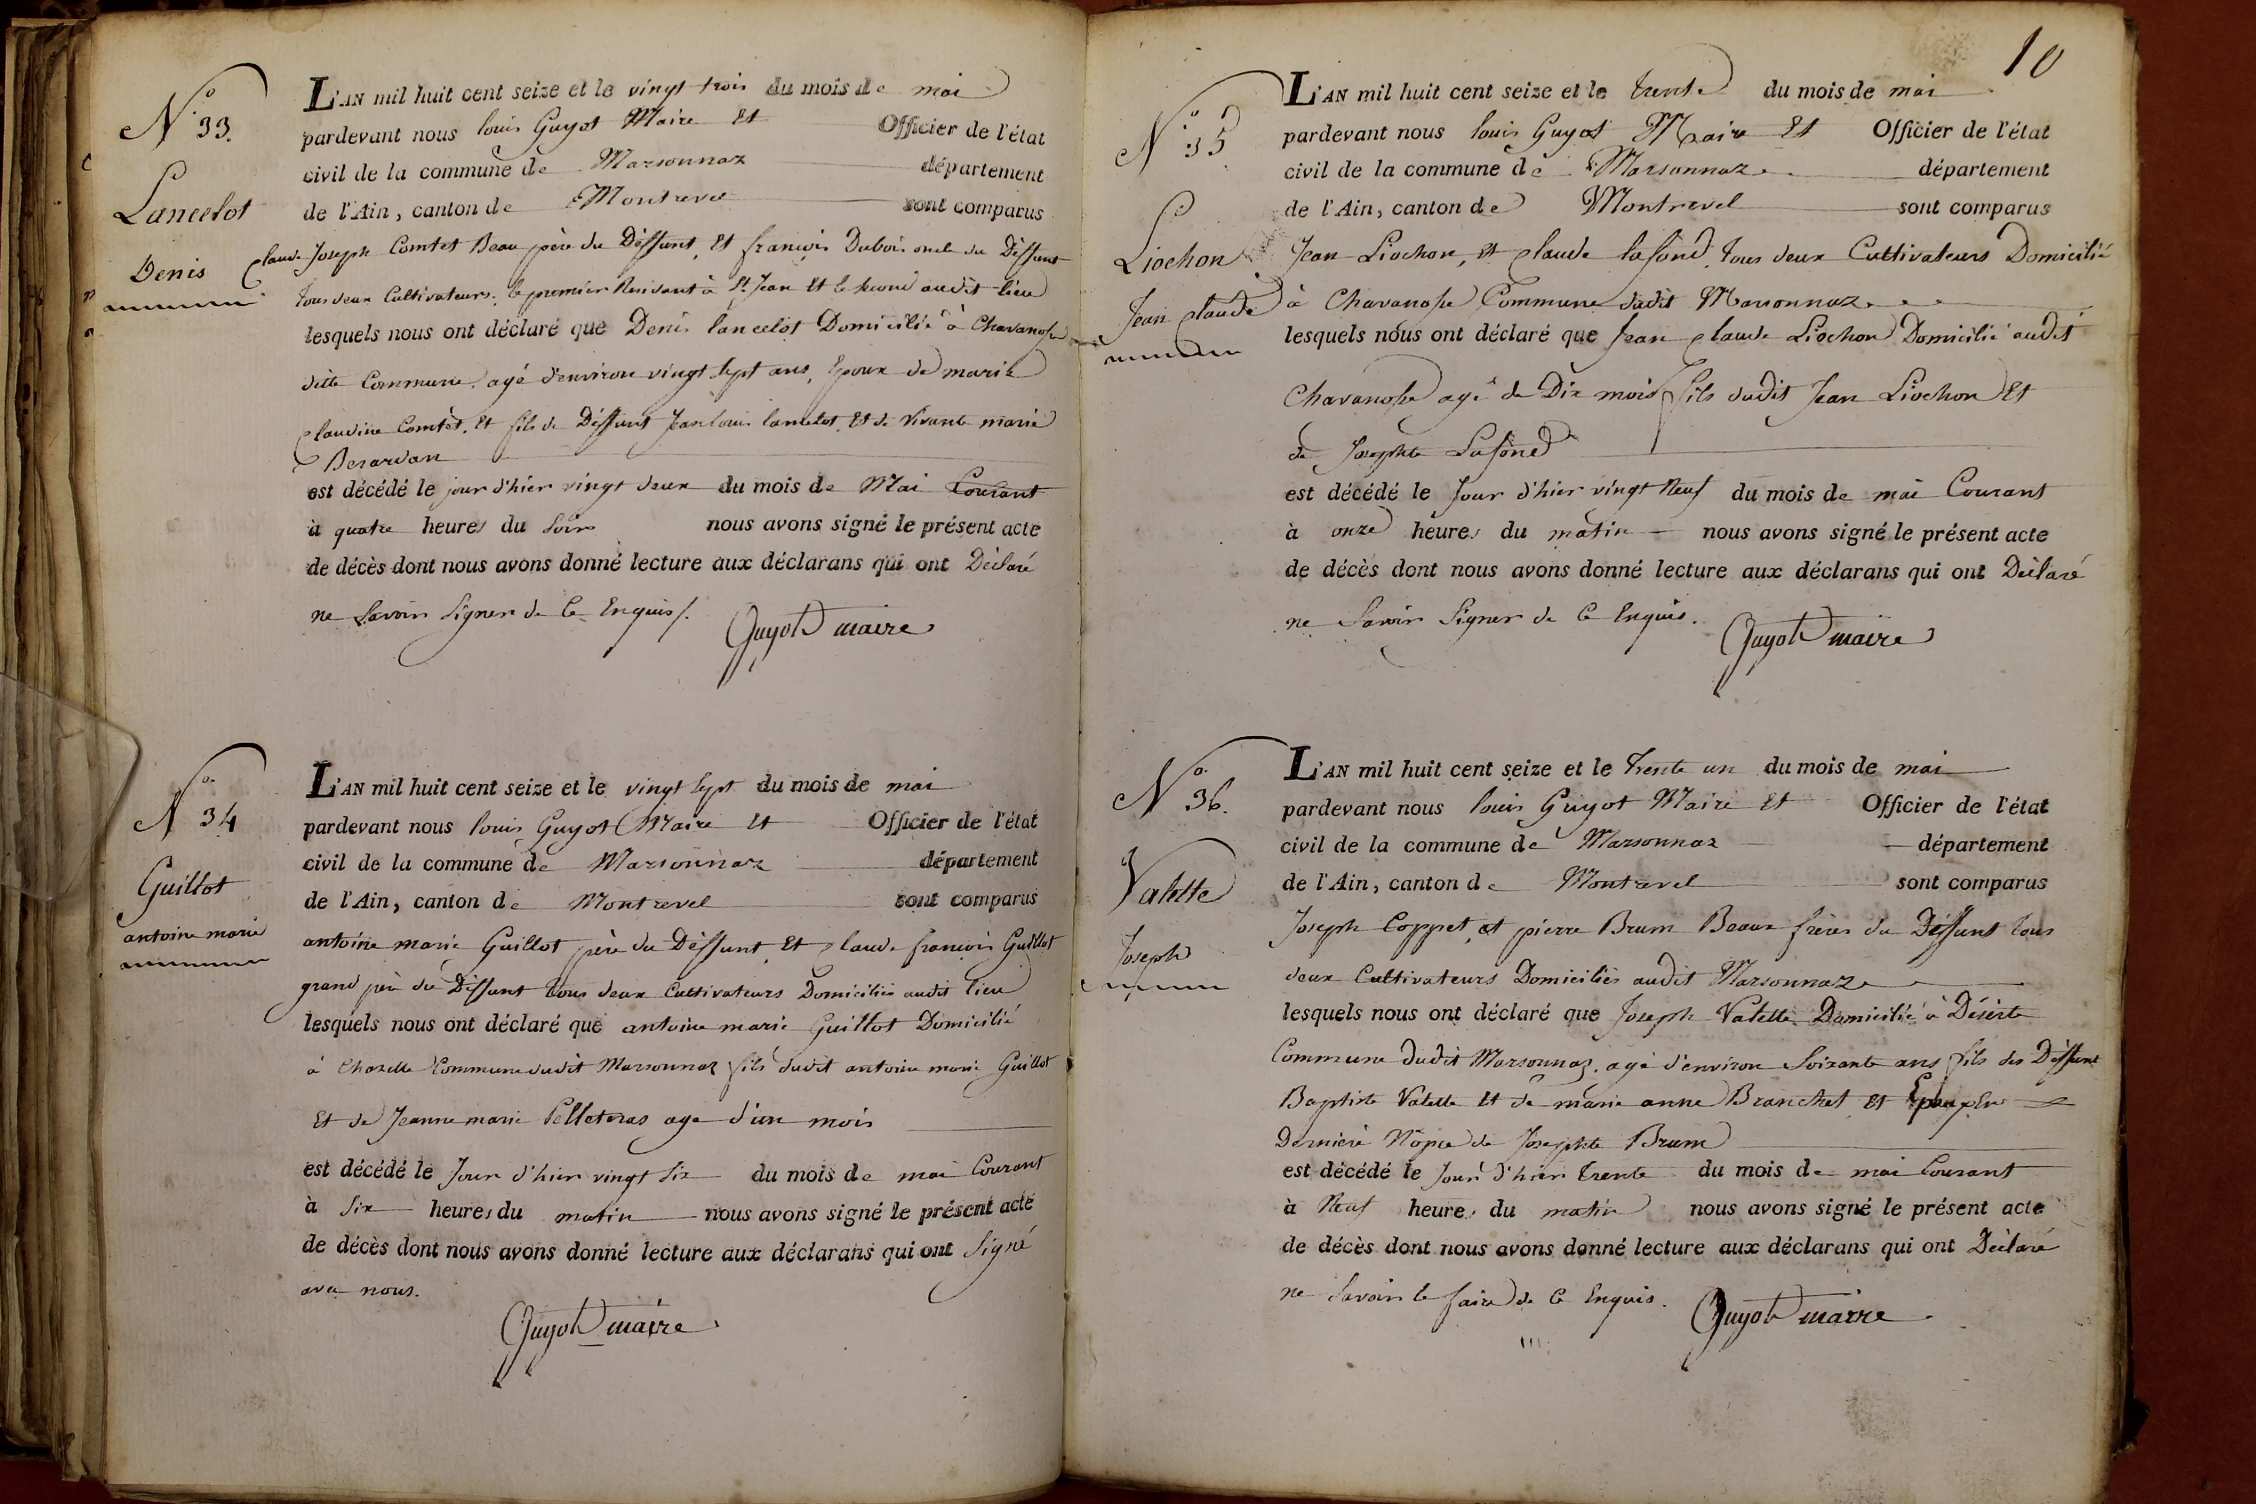 N.o 33.
Lancelot
Denis
L'AN mil huit cent seize et le vingt trois du mois de mai
pardevant nous louis Guyot Maire Et Officier de l'état
civil de la commune de Marsonnaz département
de l'Ain, canton de Montrevel sont comparus
Claude Joseph Comtet Beau père du Déffunt, Et françois Dubois oncle du Déffunt
tous deux Cultivateurs, le premier Résidant à St Jean Et le second audit lieu
lesquels nous ont déclaré que Denis lancelot Domicilié à Chavanosse
ditte Commune, agé d'environ vingt sept ans, Epoux de marie
Claudine Comtet, Et fils de Déffunt Jean louis lancelot, Et de Vivante marie
Berardan
est décédé le jour d'hier vingt deux du mois de Mai Courant
à quatre heures du Soir nous avons signé le présent acte
de décès dont nous avons donné lecture aux déclarans qui ont Déclaré
ne Savoir Signer de Ce Enquis /.
Guyot maire
N.o 34
Guillot
antoine marie
L'AN mil huit cent seize et le vingt sept du mois de mai
pardevant nous louis Guyot Maire Et Officier de l'état
civil de la commune de Marsonnaz département
de l'Ain, canton de Montrevel sont comparus
antoine marie Guillot père du Déffunt, Et Claude françois Guillot
grand père du Déffunt tous deux Cultivateurs Domiciliés audit lieu
lesquels nous ont déclaré que antoine marie Guillot Domicilié
à Chazelle Commune dudit Marsonnaz fils dudit antoine marie Guillot
Et de Jeanne marie Pelleteras age d'un mois
est décédé le Jour d'hier vingt Six du mois de mai Courant
à Six heures du matin nous avons signé le présent acte
de décès dont nous avons donné lecture aux déclarans qui ont Signé
avec nous.
Guyot maire
10
N.o 35
Liochon
Jean Claude
L'AN mil huit cent seize et le trente du mois de mai
pardevant nous louis Guyot Maire Et Officier de l'état
civil de la commune de Marsonnaz département
de l'Ain, canton de Montrevel sont comparus
Jean Liochon, Et Claude lafond, tous deux Cultivateurs Domicilié
à Chavanosse Commune dudit Marsonnaz
lesquels nous ont déclaré que Jean Claude Liochon Domicilié audit
Chavanosse agé de Dix mois fils dudit Jean Liochon Et
de Josephte Lafond
est décédé le Jour d'hier vingt Neuf du mois de mai Courant
à onze heures du matin nous avons signé le présent acte
de décès dont nous avons donné lecture aux déclarans qui ont Déclaré
ne Savoir Signer de Ce Enquis.
Guyot maire
N.o 36.
Valette
Joseph
L'AN mil huit cent seize et le trente un du mois de mai
pardevant nous louis Guyot Maire Et Officier de l'état
civil de la commune de Marsonnaz département
de l'Ain, canton de Montrevel sont comparus
Joseph Coppet, et pierre Brum Beaux frères du Déffunt tous
deux Cultivateurs Domiciliés audit Marsonnaz
lesquels nous ont déclaré que Joseph Valette Domicilié à Déserte
Commune dudit Marsonnaz, agé d'environ Soixante ans fils des Déffunt
Baptiste Valette Et de marie anne Branchet Et Epoux En
Derniere Nopce de Josephte Brum
est décédé le Jour d'hier trente du mois de mai Courant
à Neuf heures du matin nous avons signé le présent acte
de décès dont nous avons donné lecture aux déclarans qui ont Déclaré
ne Savoir le faire de Ce Enquis.
Guyot maire